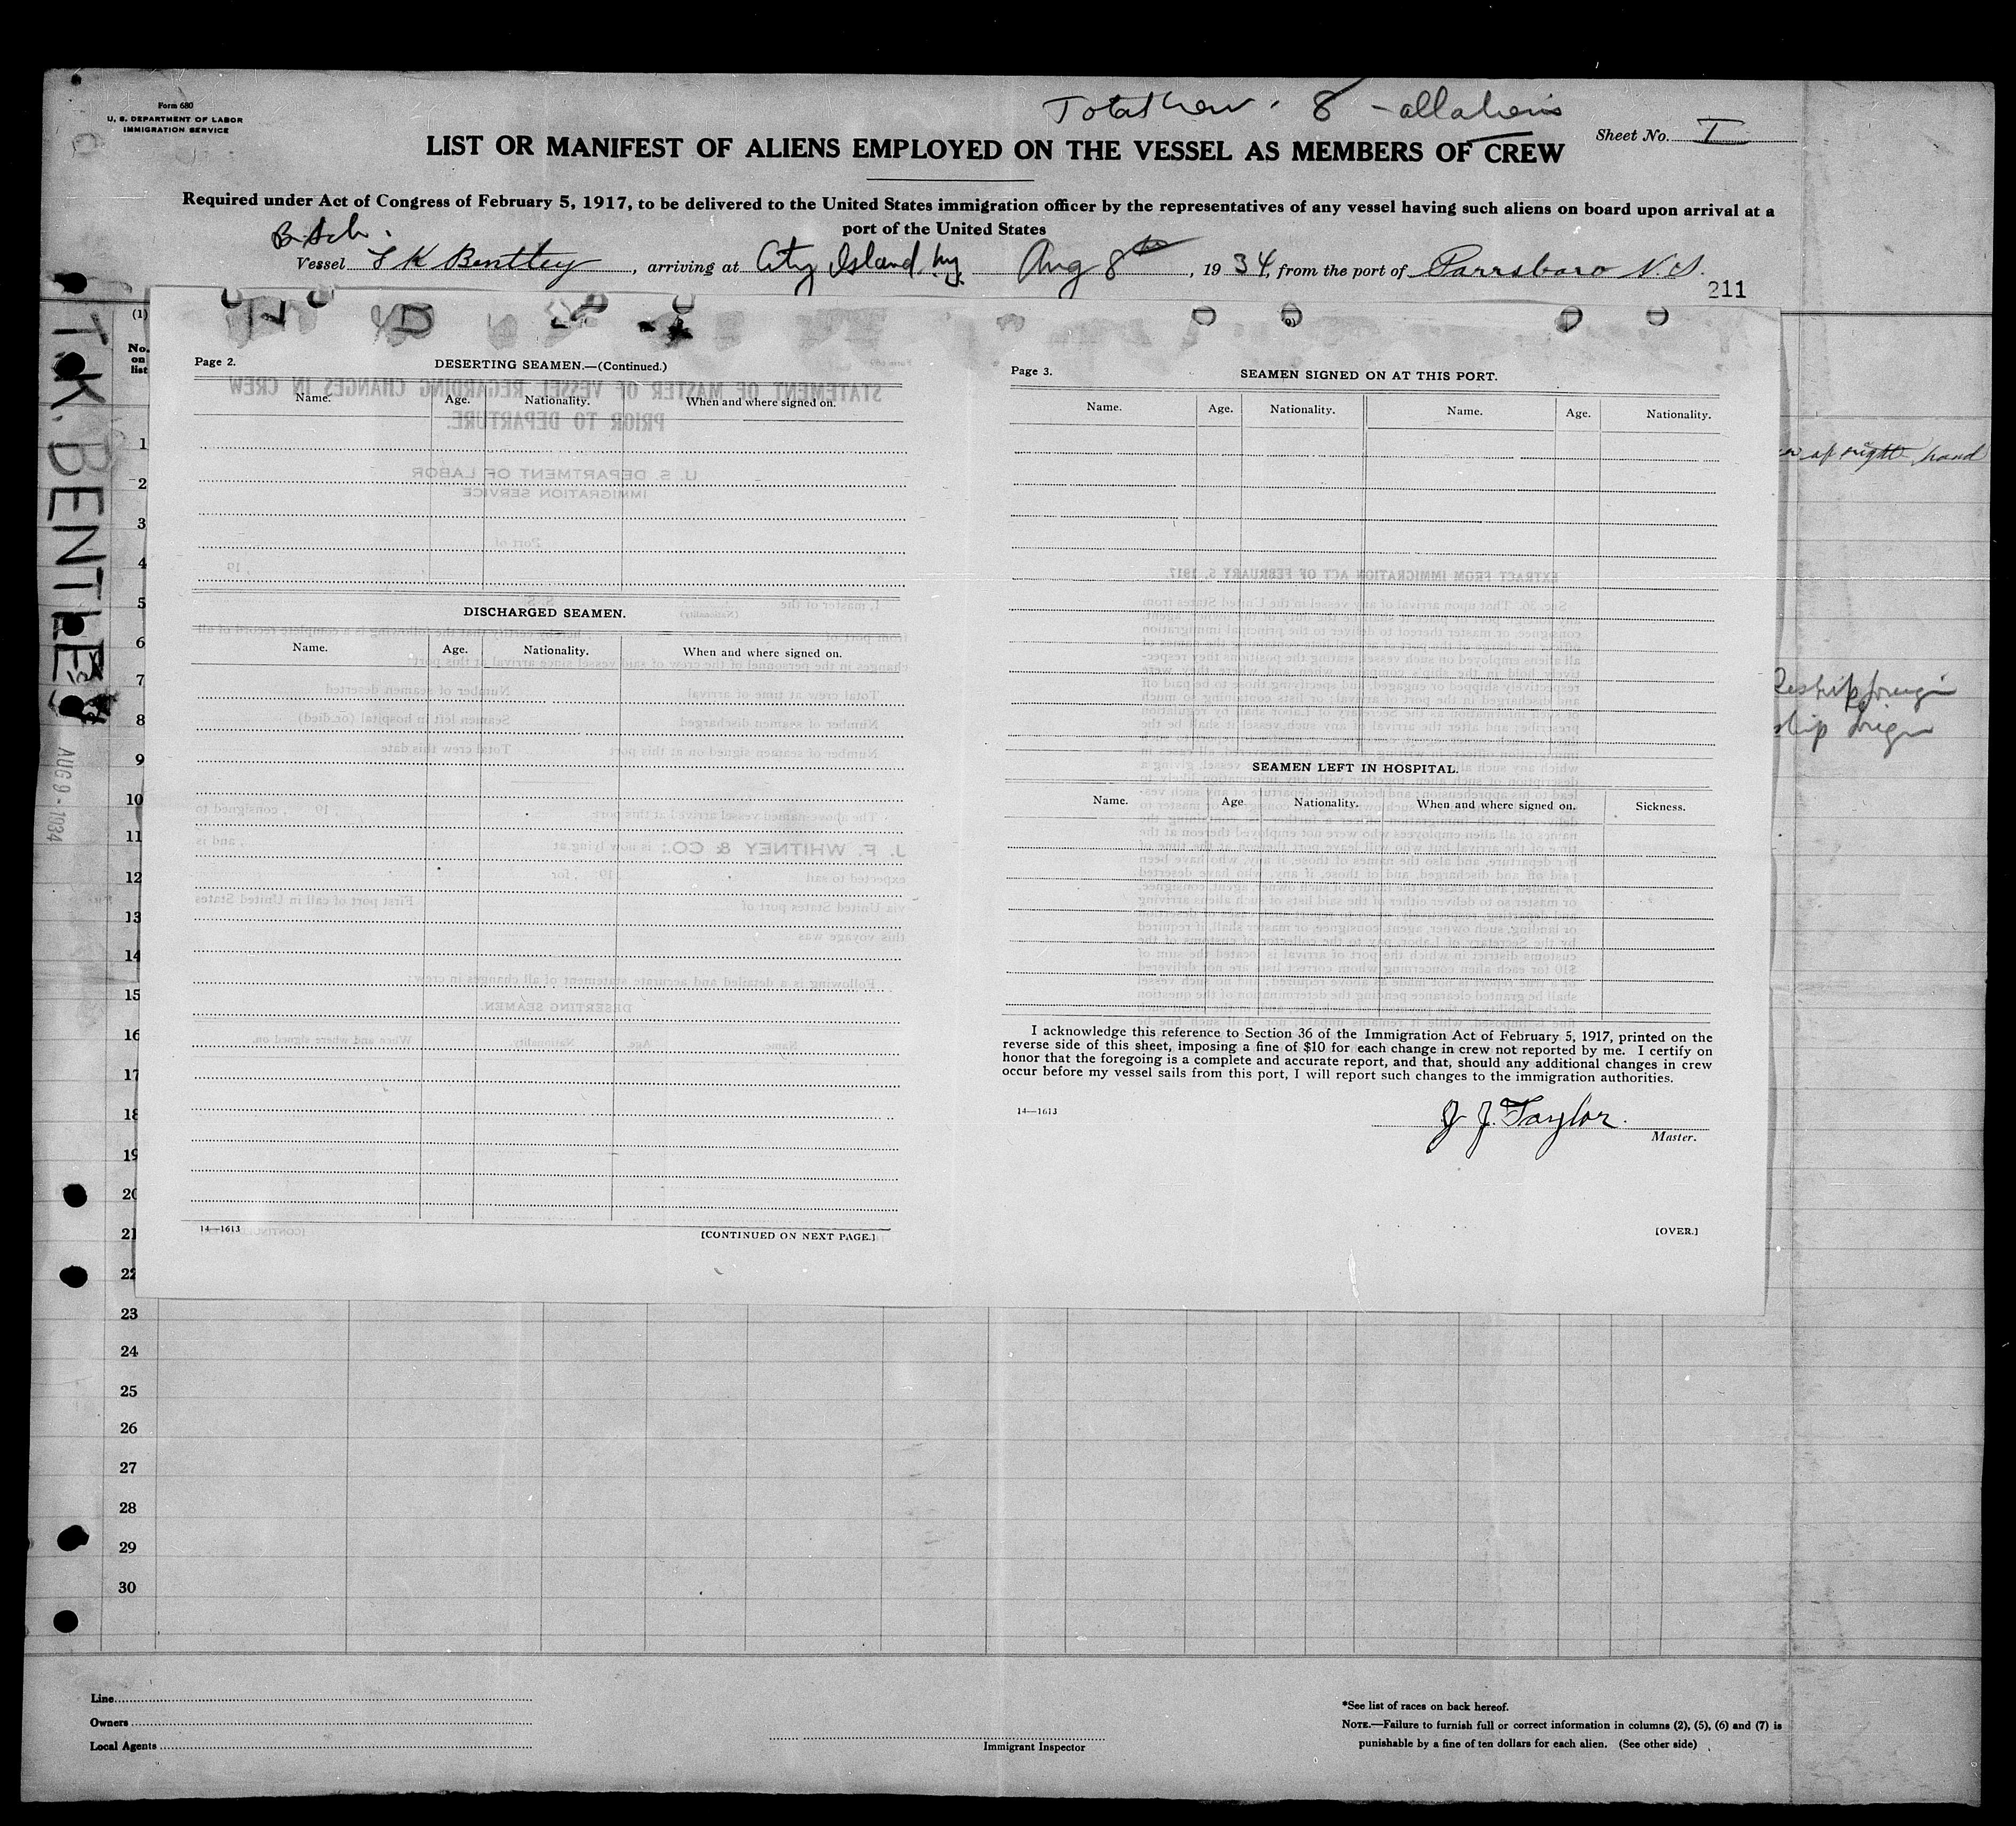 Form 680
U. S. DEPARTMENT OF LABOR
IMMIGRATION SERVICE
Total Crew. 8 - all aliens
Sheet No. I
LIST OR MANIFEST OF ALIENS EMPLOYED ON THE VESSEL AS MEMBERS OF CREW
Required under Act of Congress of February 5, 1917, to be delivered to the United States immigration officer by the representatives of any vessel having such aliens on board upon arrival at a
port of the United States
Vessel T K Bentley, arriving at City Island, ny. Aug 8th, 1934, from the port of Parrsboro N.S.
211
T.K. BENTLEY
AUG 9 - 1934
(1)
No. on list
1
2
3
4
5
6
7
8
9
10
11
12
13
14
15
16
17
18
19
20
21
22
23
24
25
26
27
28
29
30
Page 2.
DESERTING SEAMEN.—(Continued.)
Name. Age. Nationality. When and where signed on.
DISCHARGED SEAMEN.
Name. Age. Nationality. When and where signed on.
14—1613
[CONTINUED ON NEXT PAGE.]
Page 3.
SEAMEN SIGNED ON AT THIS PORT.
Name. Age. Nationality. Name. Age. Nationality.
SEAMEN LEFT IN HOSPITAL.
Name. Age Nationality. When and where signed on. Sickness.
I acknowledge this reference to Section 36 of the Immigration Act of February 5, 1917, printed on the
reverse side of this sheet, imposing a fine of $10 for each change in crew not reported by me. I certify on
honor that the foregoing is a complete and accurate report, and that, should any additional changes in crew
occur before my vessel sails from this port, I will report such changes to the immigration authorities.
14—1613
J J. Taylor.
Master.
[OVER.]
of right hand
Reship foreign
ship foreign
Line
Owners
Local Agents
Immigrant Inspector
*See list of races on back hereof.
NOTE.—Failure to furnish full or correct information in columns (2), (5), (6) and (7) is
punishable by a fine of ten dollars for each alien. (See other side)